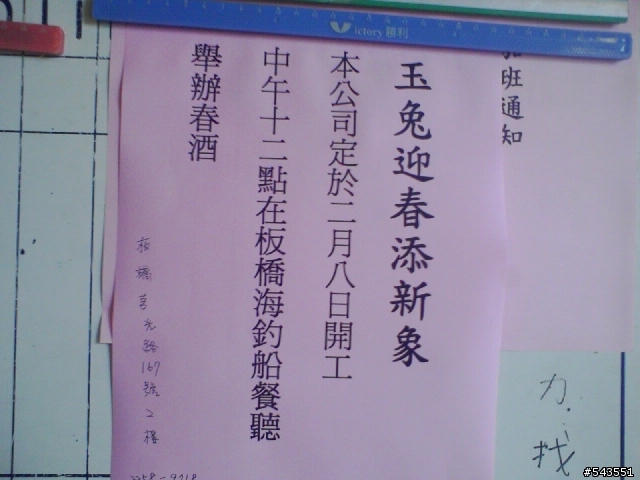 ictory 勝利
班通知
玉兔迎春添新象
本公司定於二月八日開工
中午十二點在板橋海釣船餐聽
舉辦春酒
板橋莒光路167號2樓
力.
找
#543551